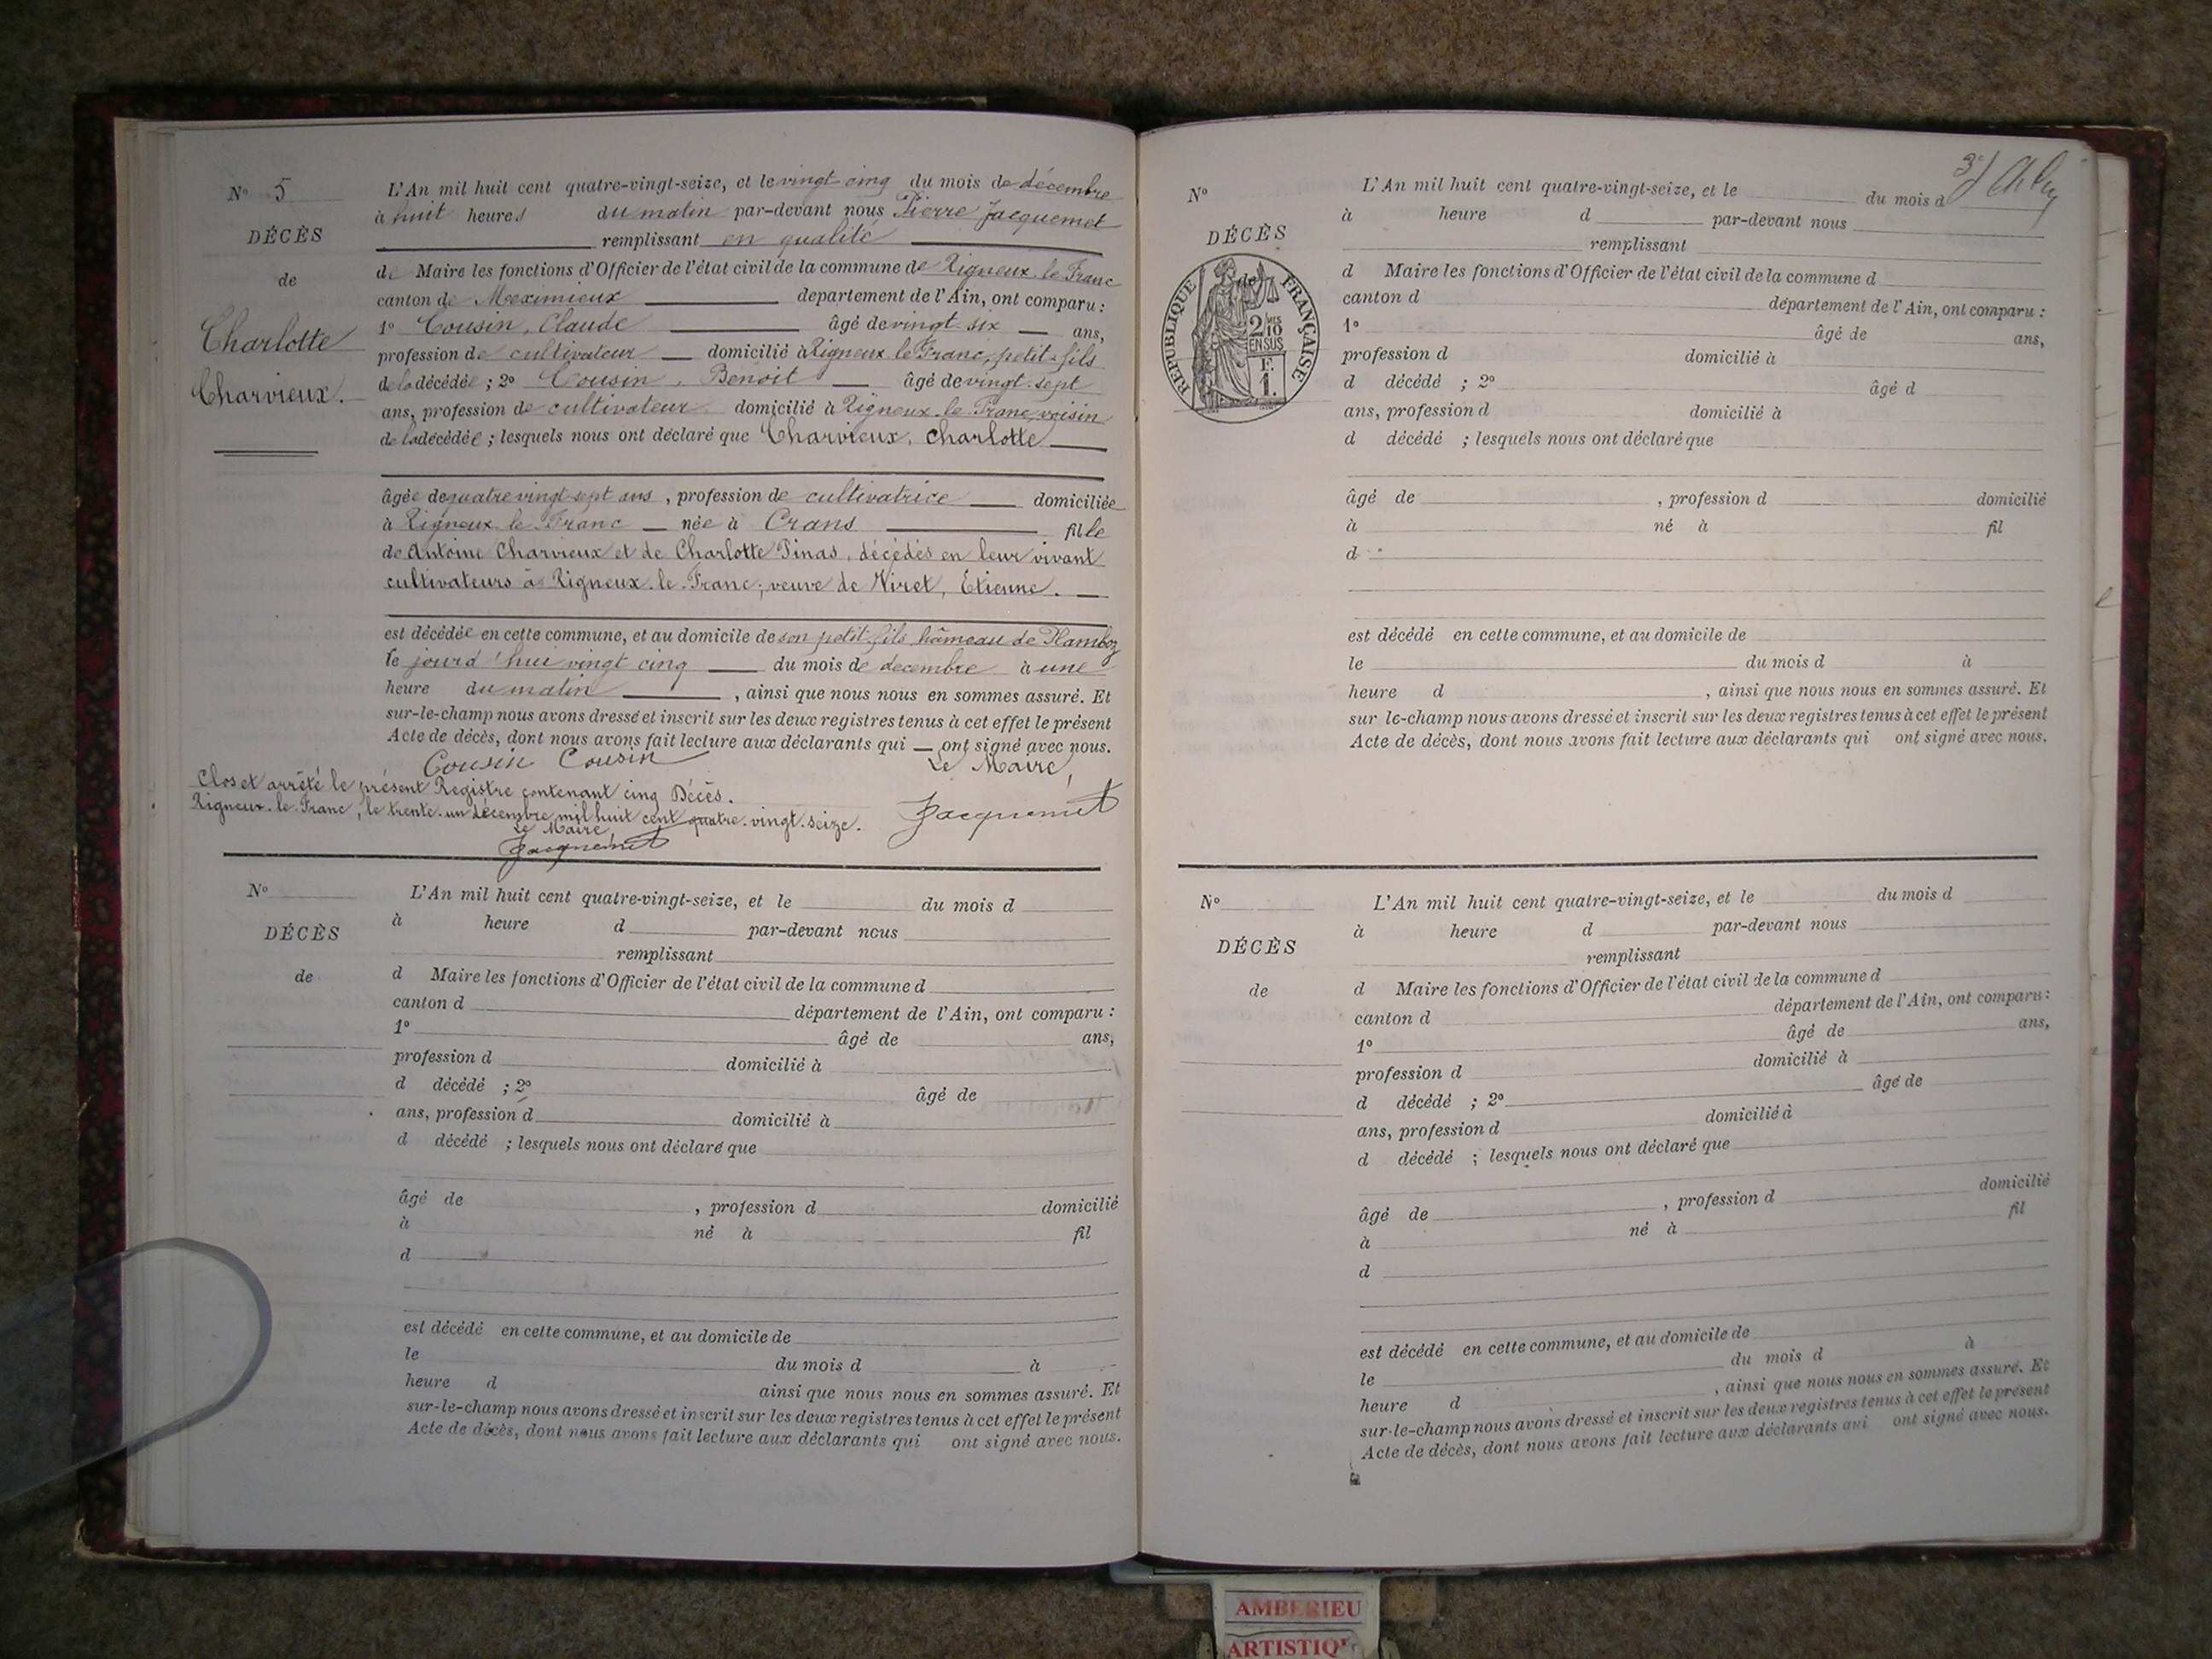 N° 5
DÉCÈS
de
Charlotte
Charvieux.
L'An mil huit cent quatre-vingt-seize, et le vingt cinq du mois de décembre
à huit heures du matin par-devant nous Pierre Jacquemet
remplissant en qualité
de Maire les fonctions d'Officier de l'état civil de la commune de Rigneux-le-Franc
canton de Meximieux departement de l'Ain, ont comparu :
1° Cousin, Claude âgé de vingt-six ans,
profession de cultivateur domicilié à Rigneux le Franc, petit-fils
de la décédée ; 2° Cousin, Benoit âgé de vingt-sept
ans, profession de cultivateur domicilié à Rigneux-le-Franc voisin
de la décédée ; lesquels nous ont déclaré que Charvieux, Charlotte
âgée de quatre vingt sept ans, profession de cultivatrice domiciliée
à Rigneux-le-Franc née à Crans fille
de Antoine Charvieux et de Charlotte Pinas, décédés en leur vivant
cultivateurs à Rigneux-le-Franc; veuve de Viret, Etienne.
est décédée en cette commune, et au domicile de son petit-fils, hâmeau de Plamboz
le jourd'hui vingt cinq du mois de décembre à une
heure du matin, ainsi que nous nous en sommes assuré. Et
sur-le-champ nous avons dressé et inscrit sur les deux registres tenus à cet effet le présent
Acte de décès, dont nous avons fait lecture aux déclarants qui ont signé avec nous.
Cousin Cousin Le Maire,
Jacquemet
Clos et arrêté le présent Registre contenant cinq Décès.
Rigneux-le-Franc, le trente-un décembre mil huit cent quatre-vingt-seize.
Le Maire,
Jacquemet
N°
DÉCÈS
de
L'An mil huit cent quatre-vingt-seize, et le du mois d
à heure d par-devant nous
remplissant
d Maire les fonctions d'Officier de l'état civil de la commune d
canton d département de l'Ain, ont comparu :
1° âgé de ans,
profession d domicilié à
d décédé ; 2° âgé de
ans, profession d domicilié à
d décédé ; lesquels nous ont déclaré que
âgé de , profession d domicilié
à né à fil
d
est décédé en cette commune, et au domicile de
le du mois d à
heure d ainsi que nous nous en sommes assuré. Et
sur-le-champ nous avons dressé et inscrit sur les deux registres tenus à cet effet le présent
Acte de décès, dont nous avons fait lecture aux déclarants qui ont signé avec nous.
N°
DÉCÈS
de
RÉPUBLIQUE FRANÇAISE
2/10
EN SUS
F.
1.
L'An mil huit cent quatre-vingt-seize, et le du mois d
à heure d par-devant nous
remplissant
d Maire les fonctions d'Officier de l'état civil de la commune d
canton d département de l'Ain, ont comparu :
1° âgé de ans,
profession d domicilié à
d décédé ; 2° âgé d
ans, profession d domicilié à
d décédé ; lesquels nous ont déclaré que
âgé de , profession d domicilié
à né à fil
d
est décédé en cette commune, et au domicile de
le du mois d à
heure d , ainsi que nous nous en sommes assuré. Et
sur le-champ nous avons dressé et inscrit sur les deux registres tenus à cet effet le présent
Acte de décès, dont nous avons fait lecture aux déclarants qui ont signé avec nous.
N°
DÉCÈS
de
L'An mil huit cent quatre-vingt-seize, et le du mois d
à heure d par-devant nous
remplissant
d Maire les fonctions d'Officier de l'état civil de la commune d
canton d département de l'Ain, ont comparu :
1° âgé de ans,
profession d domicilié à
d décédé ; 2° âgé de
ans, profession d domicilié à
d décédé ; lesquels nous ont déclaré que
âgé de , profession d domicilié
à né à fil
d
est décédé en cette commune, et au domicile de
le du mois d à
heure d , ainsi que nous nous en sommes assuré. Et
sur-le-champ nous avons dressé et inscrit sur les deux registres tenus à cet effet le présent
Acte de décès, dont nous avons fait lecture aux déclarants qui ont signé avec nous.
AMBERIEU
ARTISTIQ